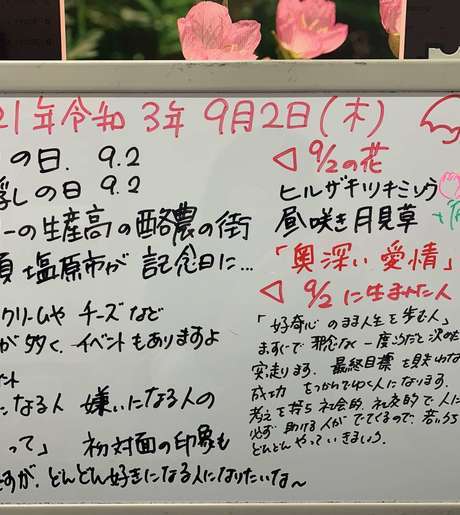 21年令和3年 9月2日(木)
の日. 9.2
乳しの日 9.2
ーの生産高の酪農の街
須塩原市が 記念日に…
クリームや チーズなど
が多く. イベントもありますよ
ント
になる人 嫌いになる人の
って」 初対面の印象も
ですが、どんどん好きになる人になりたいな〜
◁ 9/2の花
ヒルザキツキミソウ
昼咲き月見草
「奥深い愛情」
◁ 9/2に生まれた人
「好奇心のまま人生を歩む人」
まっすぐで 邪念なく 一度 だと 次のも
実走ります. 最終目標を見失わな
成功をつかんでゆく人になります.
考えを持ち 社会的、社交的で人に
必ず 助ける人が でてくるので、若いうち
どんどんやっていきましょう.